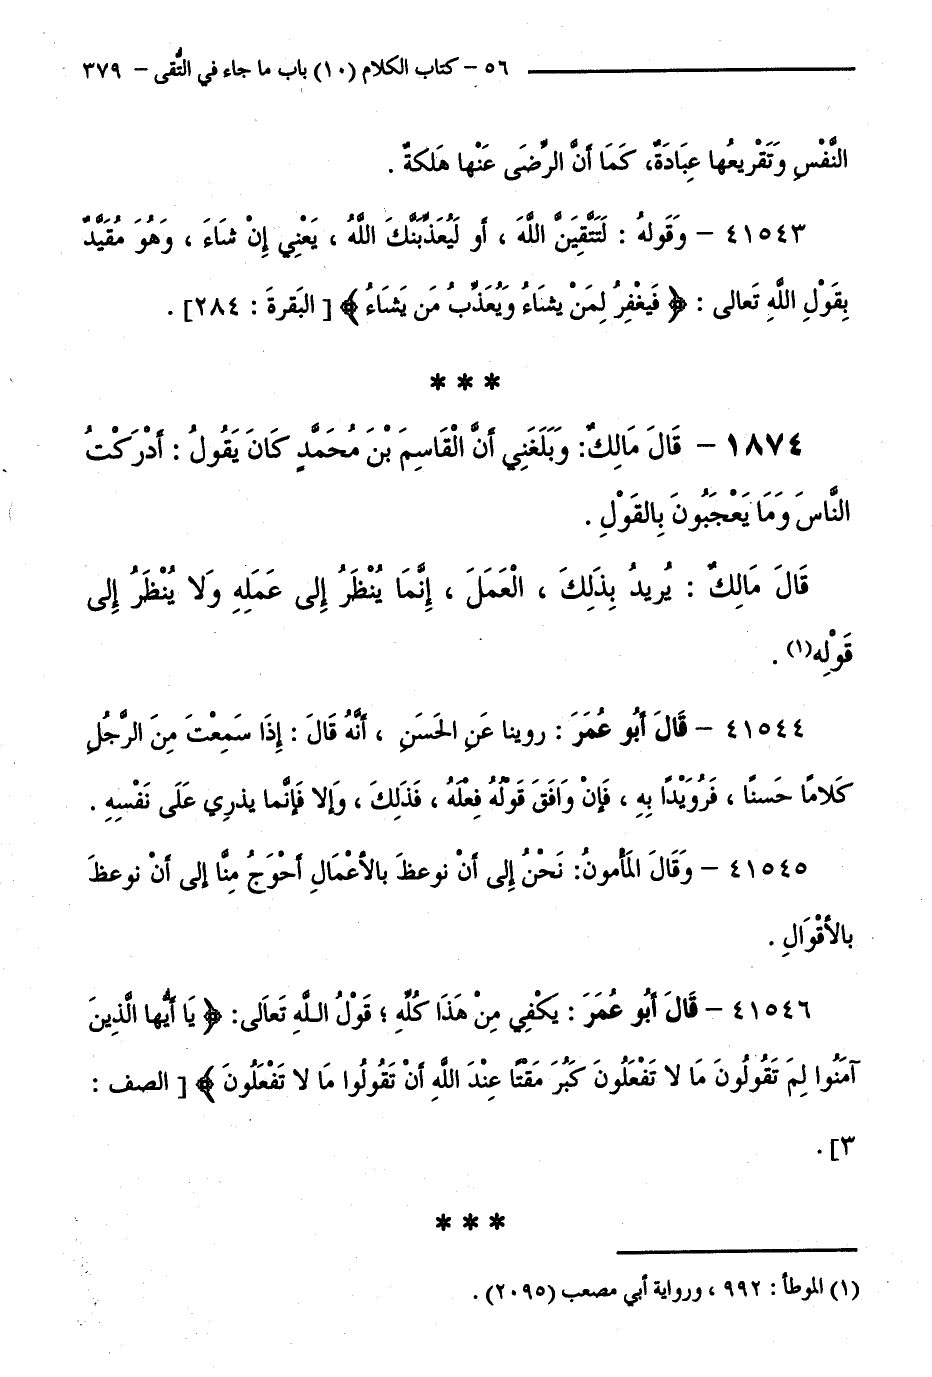 ٥٦ – كتاب الكلام (١٠) باب ما جاء في التُّقى – ٣٧٩
النَّفْسِ وَتَقْرِيعُها عِبَادَةٌ، كَمَا أَنَّ الرِّضَى عَنْها هَلكةٌ .
٤١٥٤٣ – وَقَولهُ : لَتَتَّقِيَنَّ اللَّهَ ، أو لَيُعَذِّبَنَّكَ اللَّهُ ، يَعْنِي إِنْ شاءَ ، وَهُوَ مُقَيَّدٌ
بِقَوْلِ اللَّهِ تَعالى : ﴿ فَيغْفِرُ لِمَنْ يشاءُ وَيُعَذِّبُ مَن يَشاءُ ﴾ [ البَقرةَ : ٢٨٤] .
* * *
١٨٧٤ – قَالَ مَالِكٌ: وَبَلَغَنِي أَنَّ الْقَاسِمَ بْنَ مُحَمَّدٍ كَانَ يَقُولُ : أَدْرَكْتُ
النَّاسَ وَمَا يَعْجَبُونَ بِالقَوْلِ .
قَالَ مَالِكٌ : يُرِيدُ بِذَلِكَ ، الْعَمَلَ ، إِنَّمَا يُنْظَرُ إِلى عَمَلِهِ وَلا يُنْظَرُ إِلى
قَوْلِه(١) .
٤١٥٤٤ – قَالَ أَبُو عُمَرَ : روينا عَنِ الحَسَنِ ، أَنَّهُ قَالَ : إِذَا سَمِعْتَ مِنَ الرَّجُلِ
كَلامًا حَسنًا ، فَرُوَيْدًا بِهِ ، فَإِنْ وَافَقَ قَوْلُهُ فِعْلَهُ ، فَذَلِكَ ، وَإِلا فَإِنَّما يذرِي عَلَى نَفْسِهِ .
٤١٥٤٥ – وَقَالَ المَأمونُ: نَحْنُ إِلى أَنْ نوعظَ بالأعْمَالِ أَحْوَجُ مِنَّا إِلى أَنْ نوعظَ
بالأقْوَالِ .
٤١٥٤٦ – قَالَ أَبُو عُمَرَ : يَكْفِي مِنْ هَذَا كُلِّهِ ؛ قَوْلُ اللَّهِ تَعَالَى: ﴿ يَا أَيُّها الَّذِينَ
آمَنُوا لِمَ تَقُولُونَ مَا لا تَفْعَلُونَ كَبُرَ مَقْتًا عِنْدَ اللَّهِ أَنْ تَقُولُوا مَا لا تَفْعَلُونَ ﴾ [ الصف :
٣] .
* * *
(١) الموطأ : ٩٩٢ ، ورواية أبي مصعب (٢٠٩٥) .